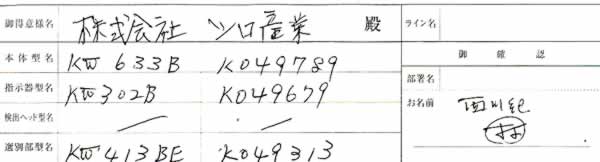 御得意様名 株式会社 ツロ産業 殿
本体型名 KW633B K049789
指示器型名 KW302B K049679
検出ヘッド型名 / /
選別部型名 KW413BE K049313
ライン名
御確認
部署名
お名前 西川